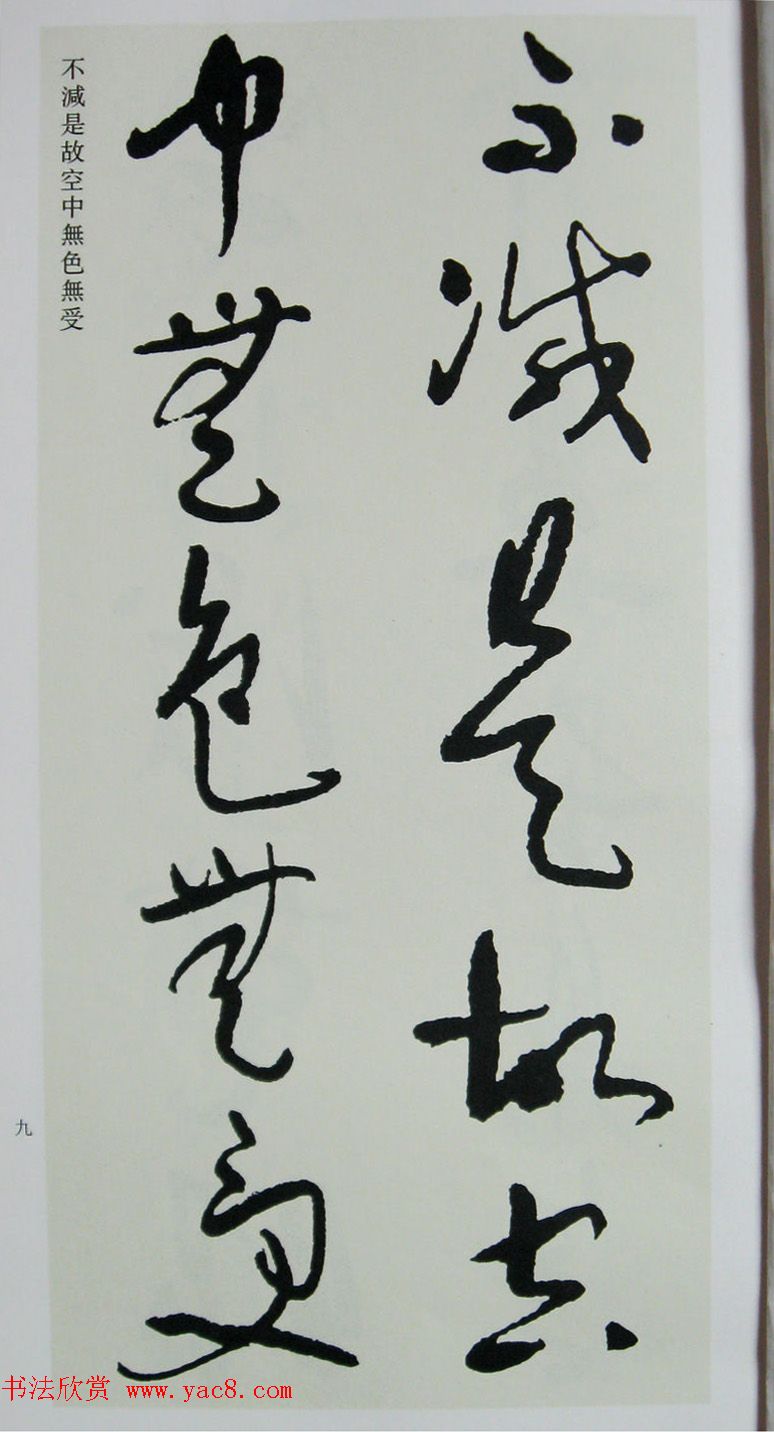 不減是故空
中無色無受
不減是故空中無色無受
九
书法欣赏 www.yac8.com